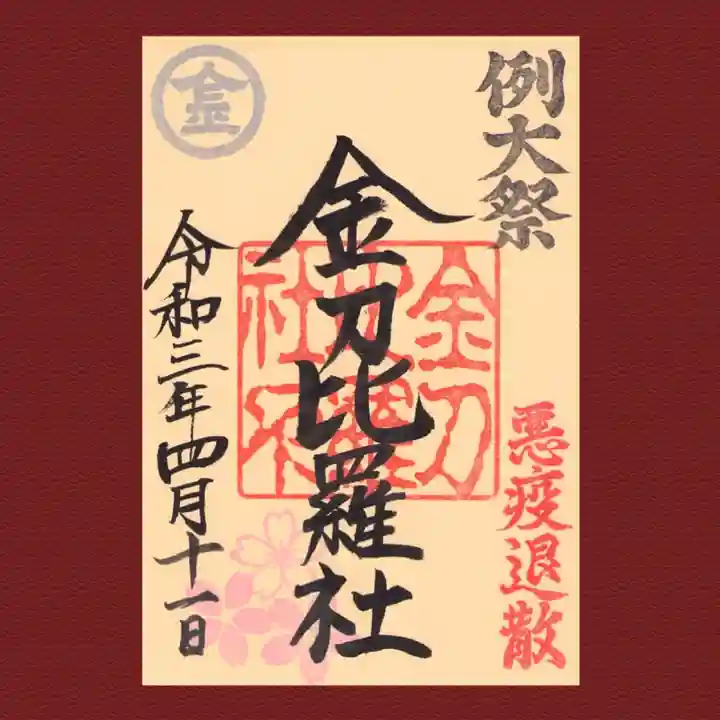 例大祭
悪疫退散
金刀比羅社
金刀比羅社
令和三年四月十一日
金